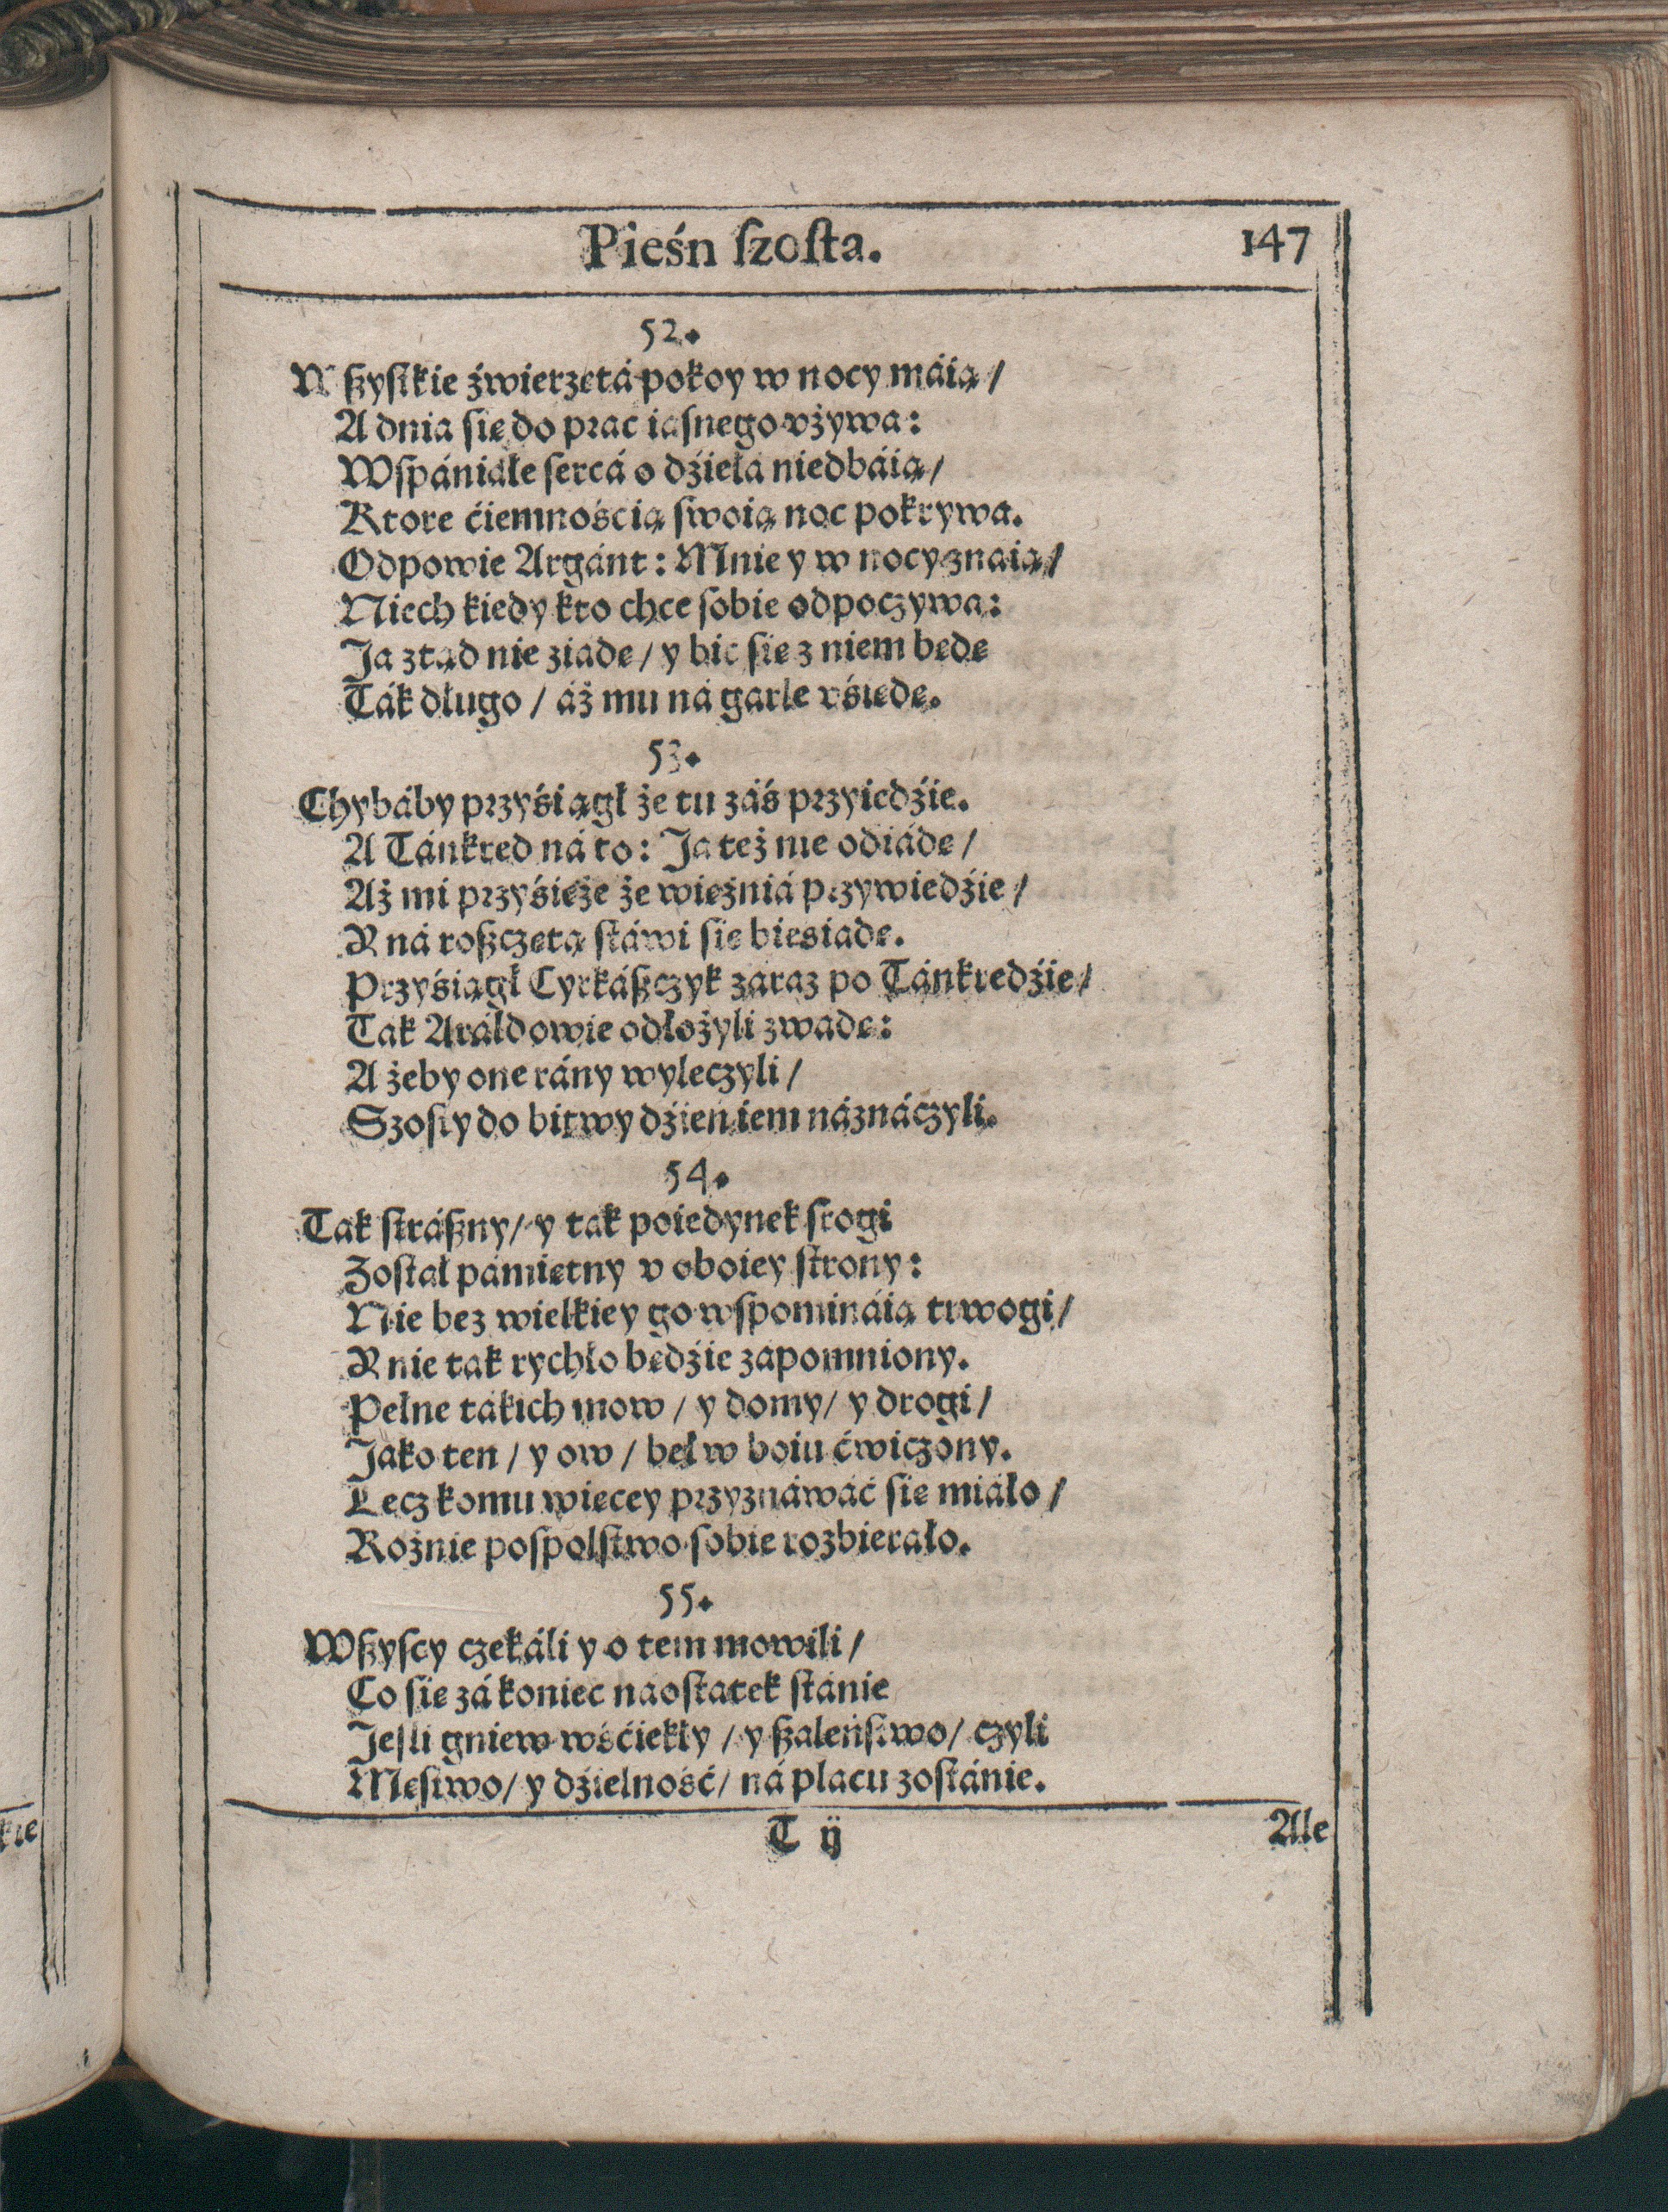 Pieśn ſzoſta. 147
52.
Wſzyſtkie źwierzętá pokoy w nocy máią /
A dnia ſię do prac iaſnego vżywa:
Wſpániáłe ſercá o dźiełá niedbáią /
Ktore ćiemnośćią ſwoią noc pokrywa.
Odpowie Argánt: Mnie y w nocy znaią /
Niech kiedy kto chce ſobie odpoczywa:
Ja ztąd nie ziadę / y bić ſię z niem będę
Ták długo / áż mu ná garle vśiędę.
53.
Chybáby przyśiągł że tu záś przyiedźie.
A Tánkred ná to: Ja też nie odiádę /
Aż mi przyśięże że więźniá przywiedźie /
Y ná roſzczętą ſtáwi ſię bieśiadę.
Przyśiągł Cyrkáſzczyk zaraz po Tánkredźie /
Tak Aráldowie odłożyli zwadę:
A żeby one rány wyleczyli /
Szoſty do bitwy dźień iem náznáczyli.
54.
Tak ſtráſzny / y tak poiedynek ſrogi
Zoſtał pámiętny v oboiey ſtrony:
Nie bez wielkiey go wſpomináią trwogi /
Y nie tak rychło będźie zápomniony.
Pełne tákich mow / y domy / y drogi /
Jako ten / y ow / beł w boiu ćwiczony.
Lecz komu więcey przyznáwáć ſię miáło /
Rożnie poſpolſtwo ſobie rozbierało.
55.
Wſzyſcy czekáli y o tem mowili /
Co ſię zá koniec naoſtatek ſtánie
Jeſli gniew wśćiekły / y ſzaleńſtwo / czyli
Męſtwo / y dźielność / ná placu zoſtánie.
T ij Ale
kie